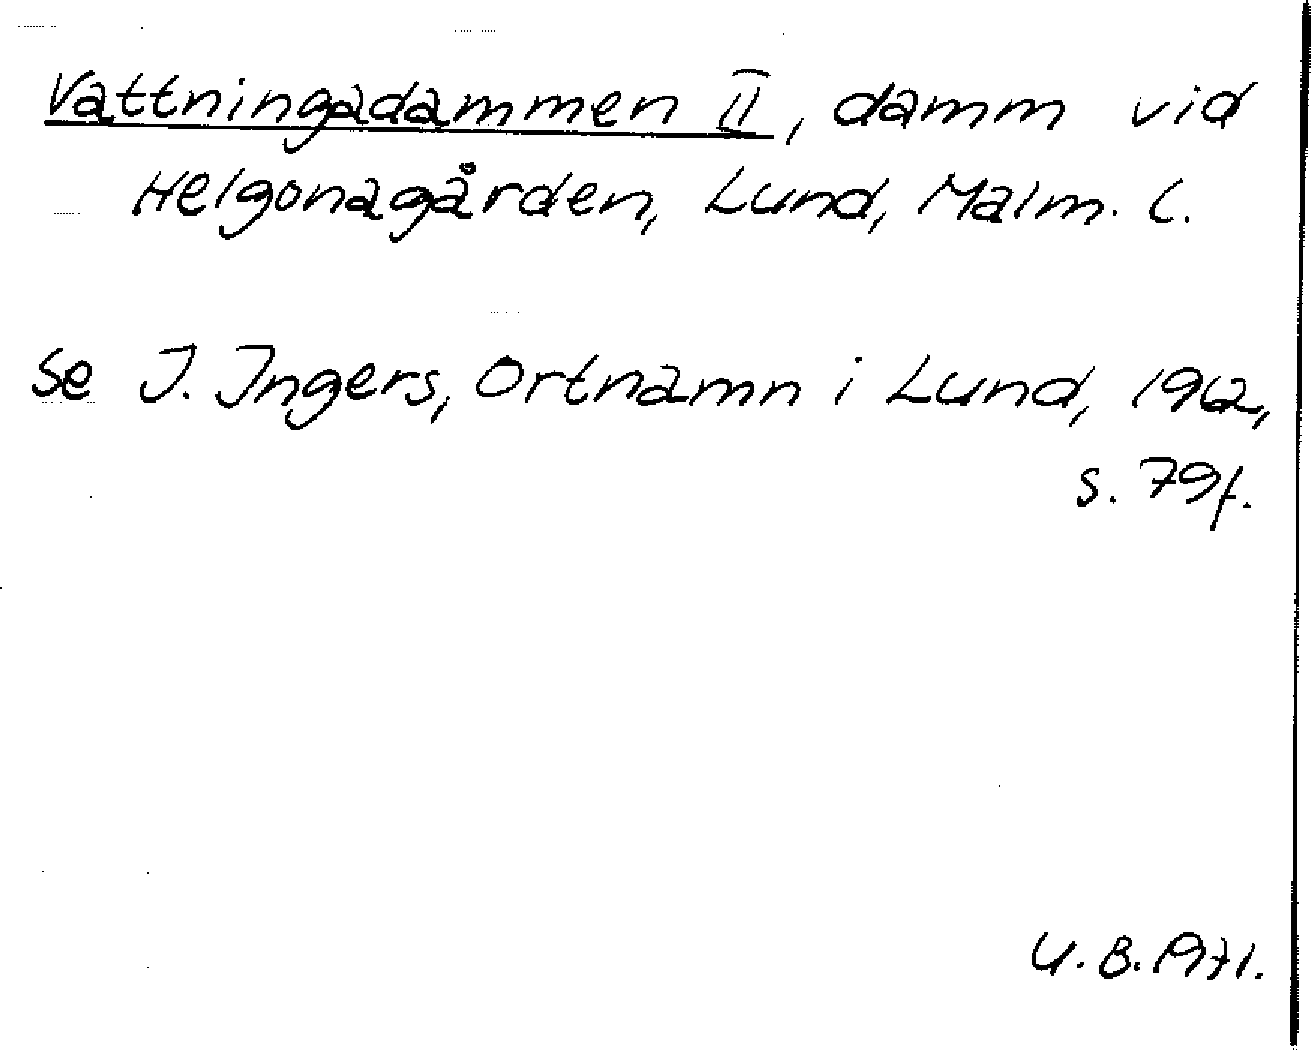 Vattningadammen II, damm vid
Helgonagården, Lund, Malm. l.
se J. Ingers, Ortnamn i Lund, 1962,
s. 79f.
U. B. 1971.